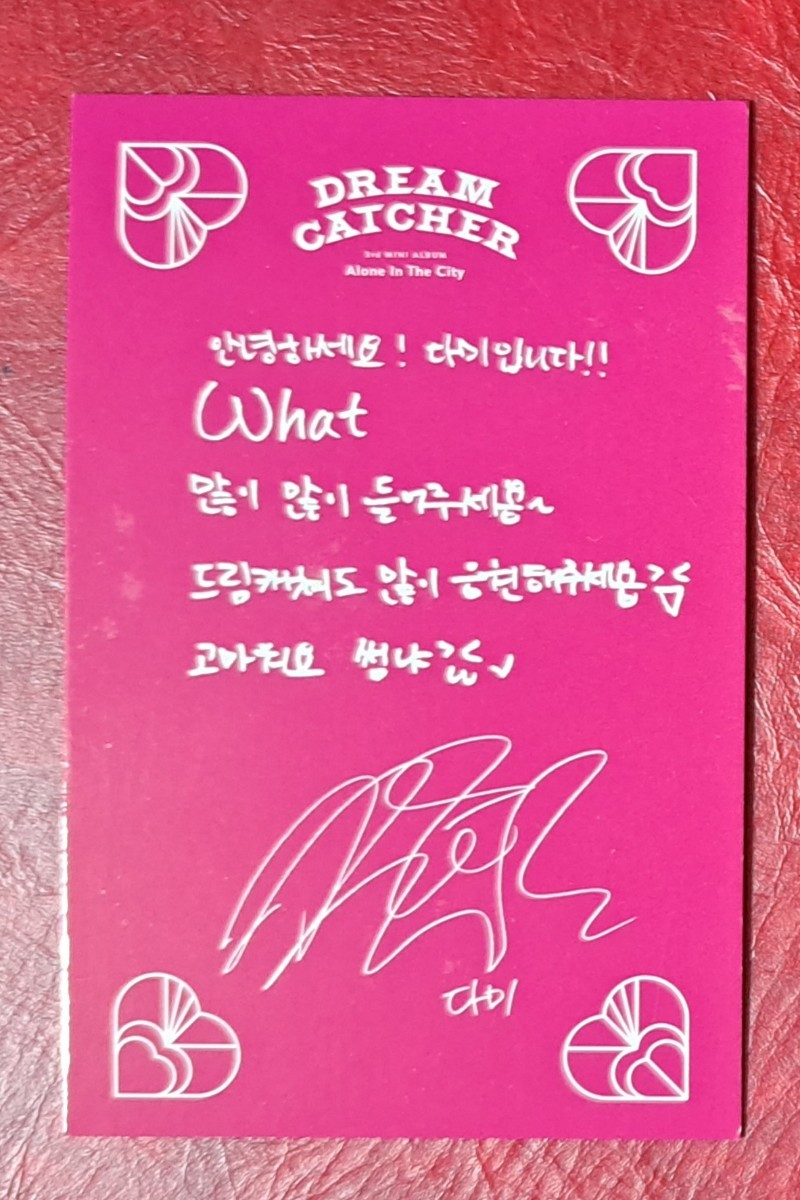 DREAM
CATCHER
3rd MINI ALBUM
Alone In The City
안녕하세요! 다미입니다!!
What
많이 많이 들어주세용~
드림캐쳐도 많이 응원해주세용
고마워요
다미